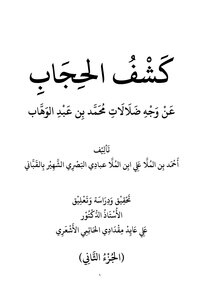 كَشْفُ الحِجَابِ
عَنْ وَجْهِ ضَلَالَاتِ مُحَمَّد بِن عَبْدِ الوَهَّاب
تَأْلِيْف
أَحْمَد بن المُلَّا عَلِي ابن المُلَّا عبادي البَصْرِي الشَّهِيْر بِالقَبَّانِي
تَحْقِيْق وَدِرَاسَة وَتَعْلِيْق
الأُسْتَاذُ الدُّكْتُوْر
عَلِي عَايِد مِقْدَادِي الحَاتِمِي الأَشْعَرِي
(الجُزْءُ الثَّانِي)